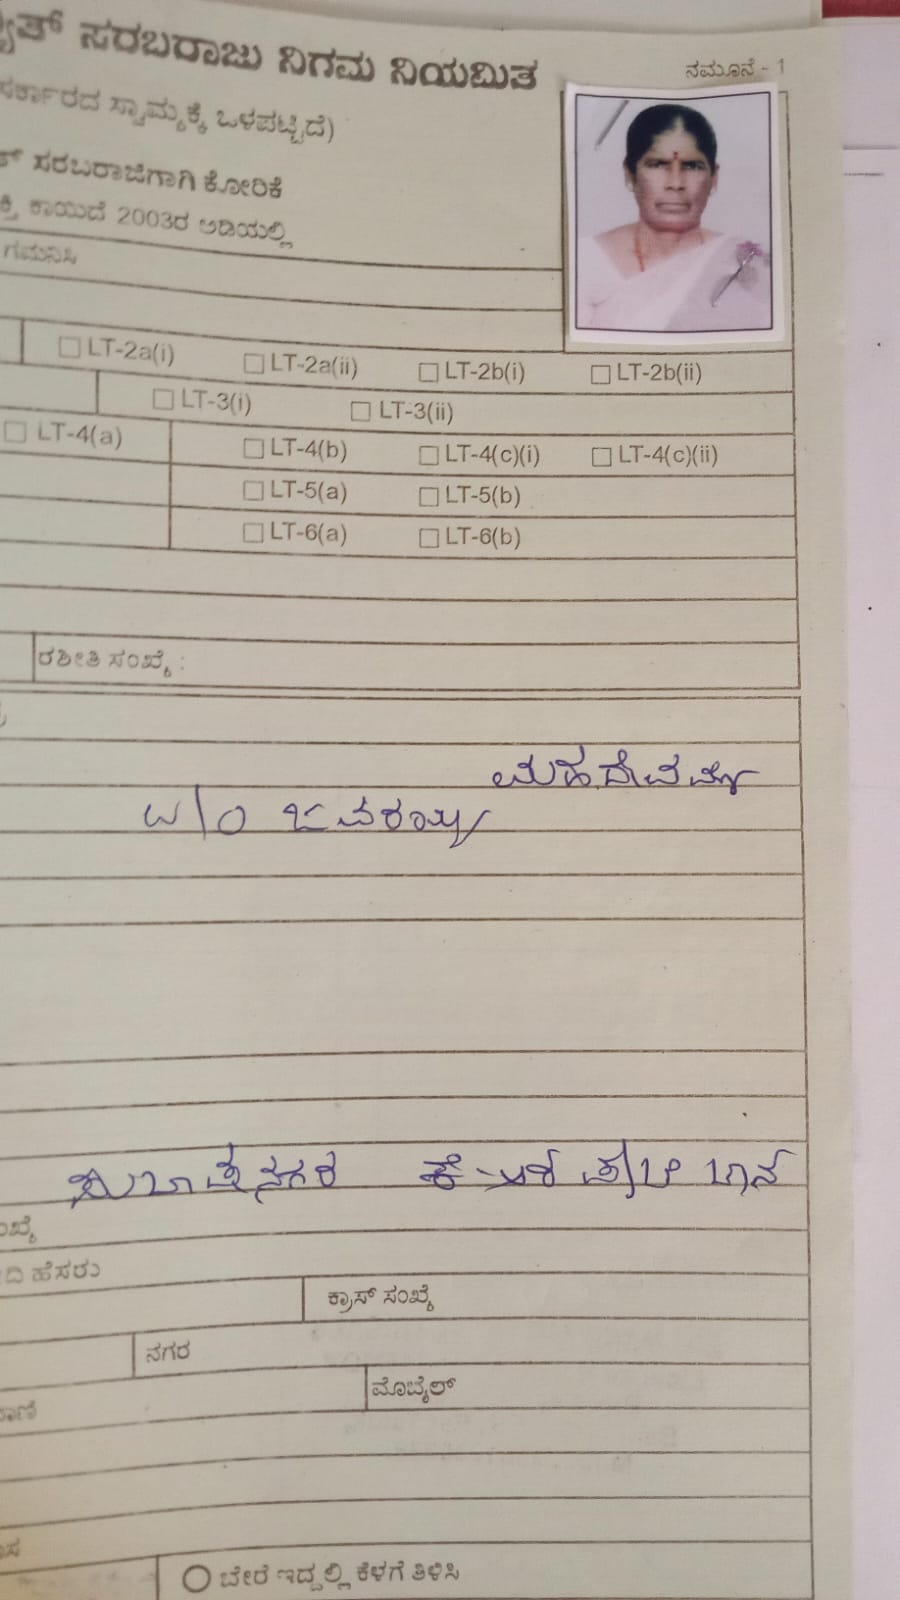 ಸರಬರಾಜು ನಿಗಮ ನಿಯಮಿತ
ನಮೂನೆ - 1
ಸರ್ಕಾರದ ಸ್ವಾಮ್ಯಕ್ಕೆ ಒಳಪಟ್ಟಿದೆ)
ಸರಬರಾಜಿಗಾಗಿ ಕೋರಿಕೆ
ಕಾಯಿದೆ 2003ರ ಅಡಿಯಲ್ಲಿ
ಗಮನಿಸಿ
☐ LT-2a(i) ☐ LT-2a(ii) ☐ LT-2b(i) ☐ LT-2b(ii)
☐ LT-3(i) ☐ LT-3(ii)
☐ LT-4(a) ☐ LT-4(b) ☐ LT-4(c)(i) ☐ LT-4(c)(ii)
☐ LT-5(a) ☐ LT-5(b)
☐ LT-6(a) ☐ LT-6(b)
ರಶೀತಿ ಸಂಖ್ಯೆ :
ಮಹದೇವಮ್ಮ
W/O ಜವರಯ್ಯ
ಸುಬಾಷನಗರ
ಹೆಸರು
ಕ್ರಾಸ್ ಸಂಖ್ಯೆ
ನಗರ
ಮೊಬೈಲ್
ಬೇರೆ ಇದ್ದಲ್ಲಿ ಕೆಳಗೆ ತಿಳಿಸಿ